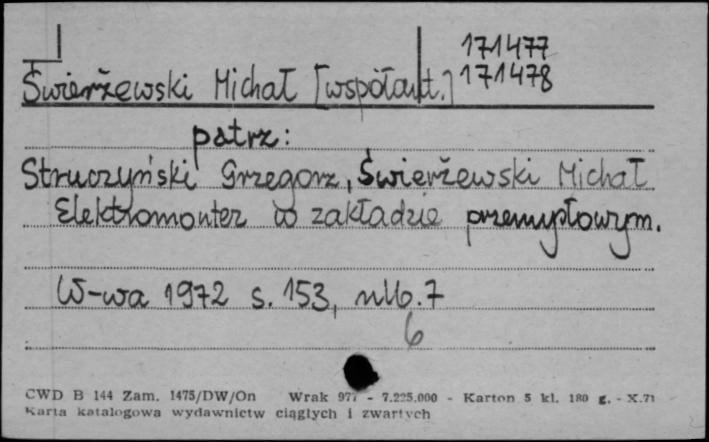 171477
Świerżewski Michał [współaut.] 171478
patrz:
Struczyński Grzegorz, Świerżewski Michał
Elektromonter w zakładzie przemysłowym.
W-wa 1972 s. 153, nlb. 7
6
CWD B 144 Zam. 1475/DW/On Wrak 977 - 7.225.000 - Karton 5 kl. 180 g. - X.71
Karta katalogowa wydawnictw ciągłych i zwartych